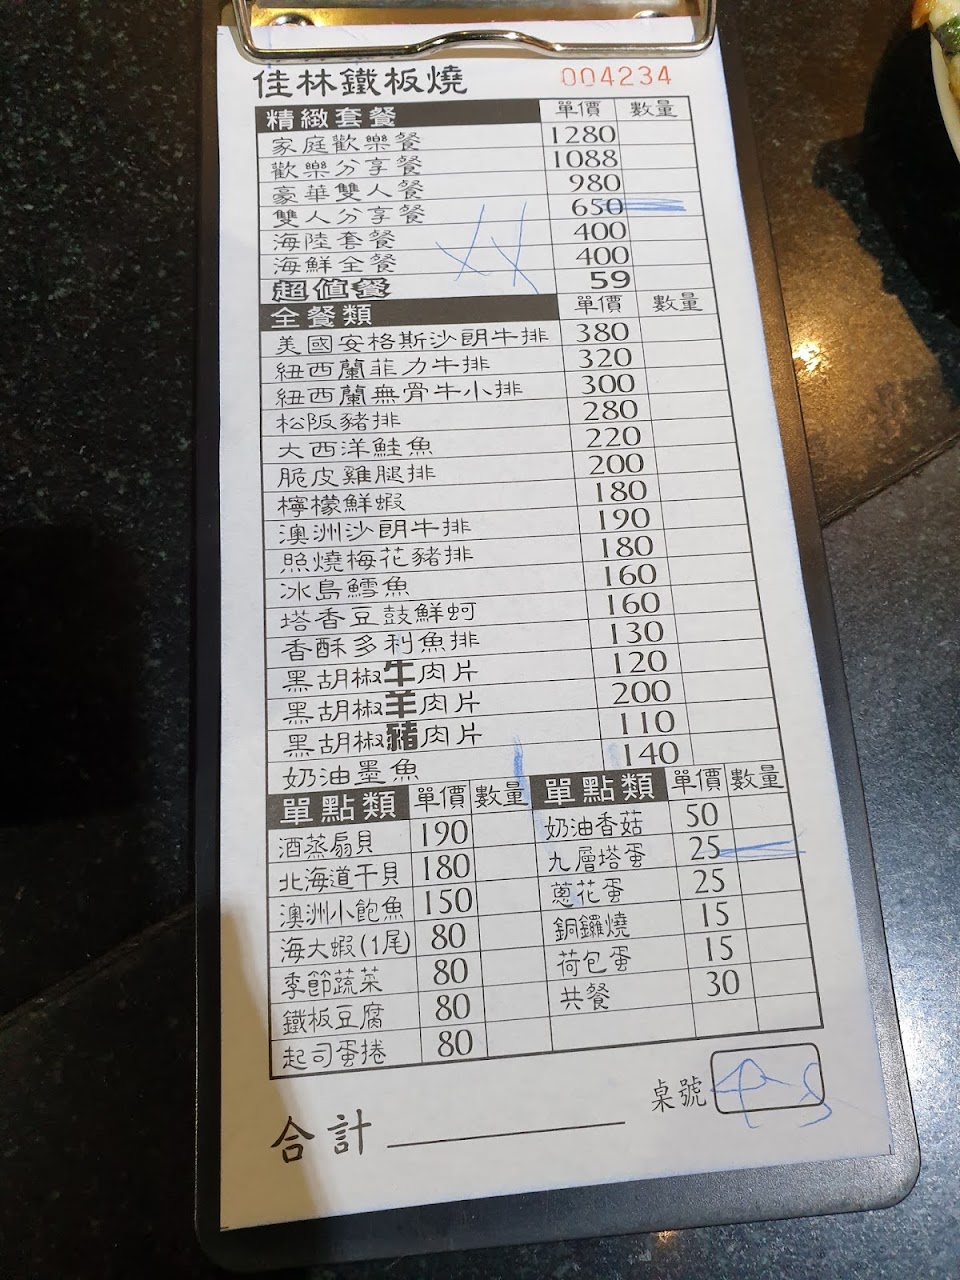 佳林鐵板燒 004234
精緻套餐 單價 數量
家庭歡樂餐 1280
歡樂分享餐 1088
豪華雙人餐 980
雙人分享餐 650
海陸套餐 400
海鮮全餐 400
超值餐 59
全餐類 單價 數量
美國安格斯沙朗牛排 380
紐西蘭菲力牛排 320
紐西蘭無骨牛小排 300
松阪豬排 280
大西洋鮭魚 220
脆皮雞腿排 200
檸檬鮮蝦 180
澳洲沙朗牛排 190
照燒梅花豬排 180
冰島鱈魚 160
塔香豆鼓鮮蚵 160
香酥多利魚排 130
黑胡椒牛肉片 120
黑胡椒羊肉片 200
黑胡椒豬肉片 110
奶油墨魚 140
單點類 單價 數量 單點類 單價 數量
酒蒸扇貝 190 奶油香菇 50
北海道干貝 180 九層塔蛋 25
澳洲小鮑魚 150 蔥花蛋 25
海大蝦(1尾) 80 銅鑼燒 15
季節蔬菜 80 荷包蛋 15
鐵板豆腐 80 共餐 30
起司蛋捲 80
桌號
合計